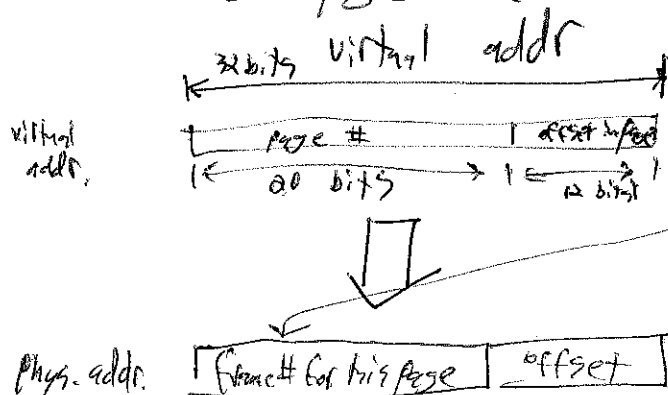 32 bits virtual addr
virtual page # offset in page
addr. 20 bits 12 bits
phys. addr. frame # for this page offset